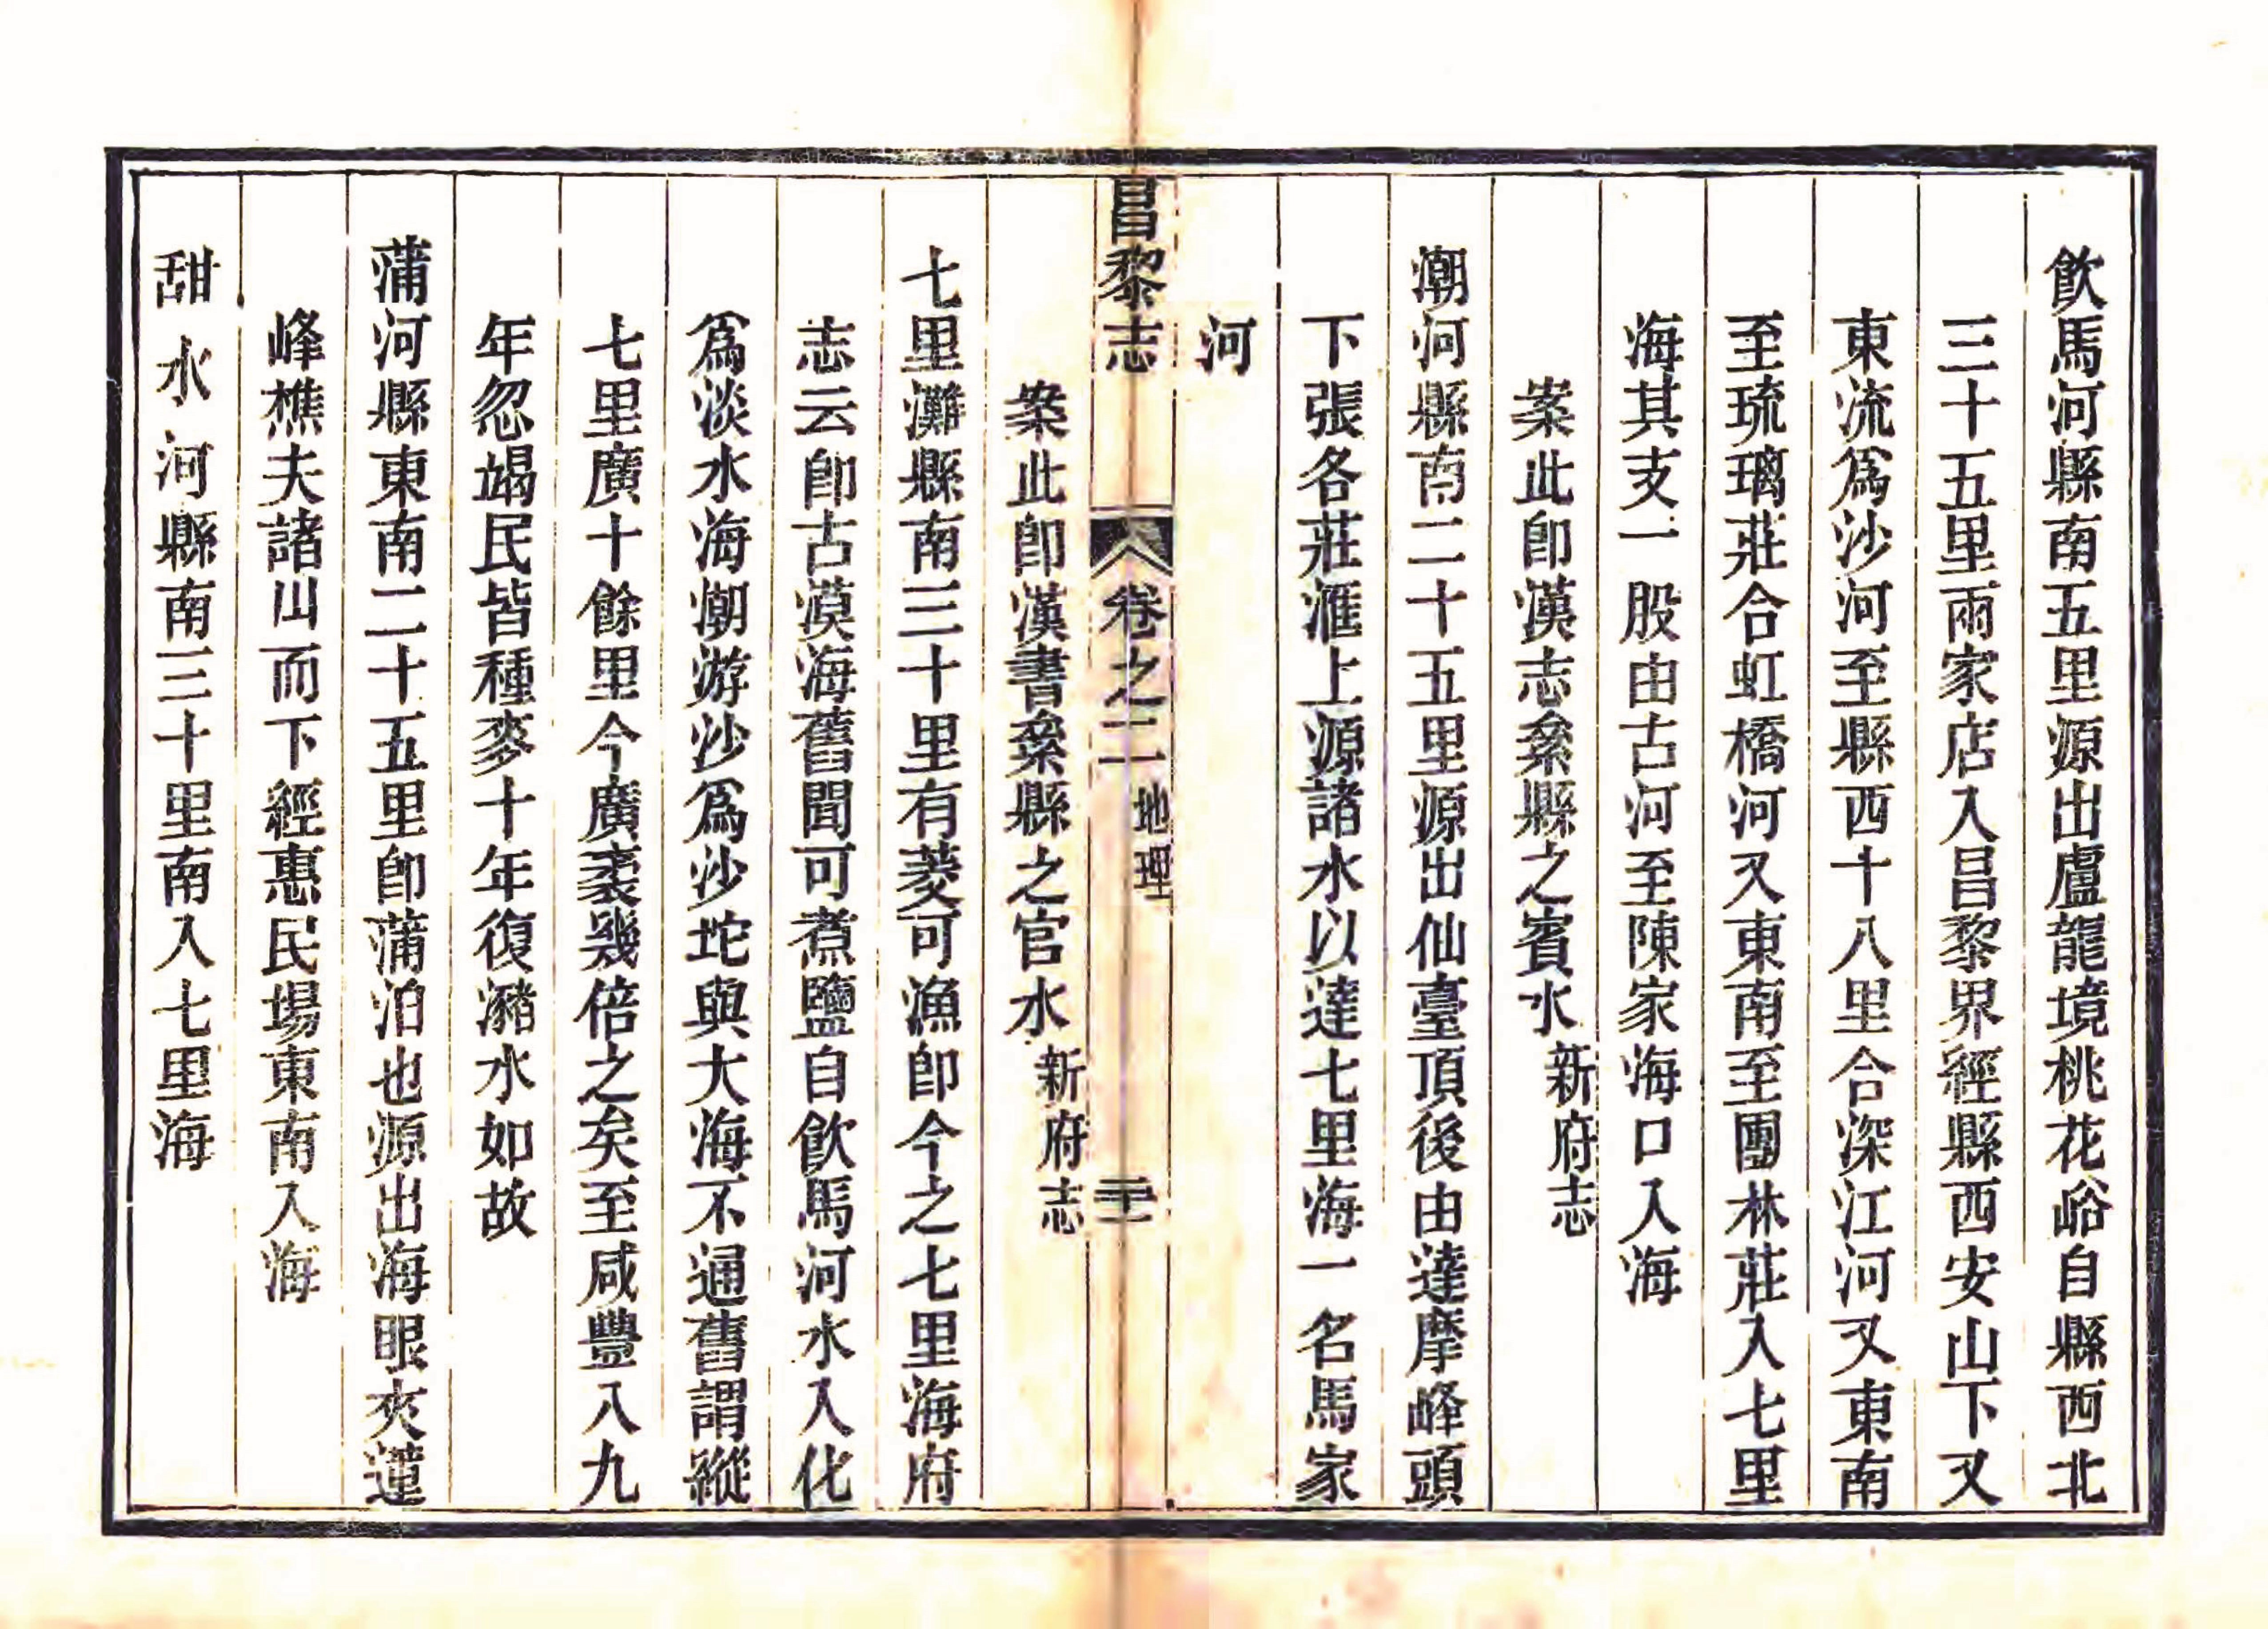 飲馬河縣南五里源出盧龍境桃花峪自縣西北
三十五里兩家店入昌黎界經縣西安山下又
東流爲沙河至縣西十八里合深江河又東南
至琉璃莊合虹橋河又東南至團林莊入七里
海其支一股由古河至陳家海口入海
案此卽漢志絫縣之賓水新府志
潮河縣南二十五里源出仙臺頂後由達摩峰頭
下張各莊滙上源諸水以達七里海一名馬家
河
昌黎志
卷之二
地理
二十一
案此卽漢書絫縣之官水新府志
七里灘縣南三十里有菱可漁卽今之七里海府
志云卽古漠海舊聞可煮鹽自飲馬河水入化
爲淡水海潮游沙爲沙坨與大海不通舊謂縱
七里廣十餘里今廣袤幾倍之矣至咸豐八九
年忽竭民皆種麥十年復瀦水如故
蒲河縣東南二十五里卽蒲泊也源出海眼夾蓮
峰樵夫諸山而下經惠民場東南入海
甜水河縣南三十里南入七里海